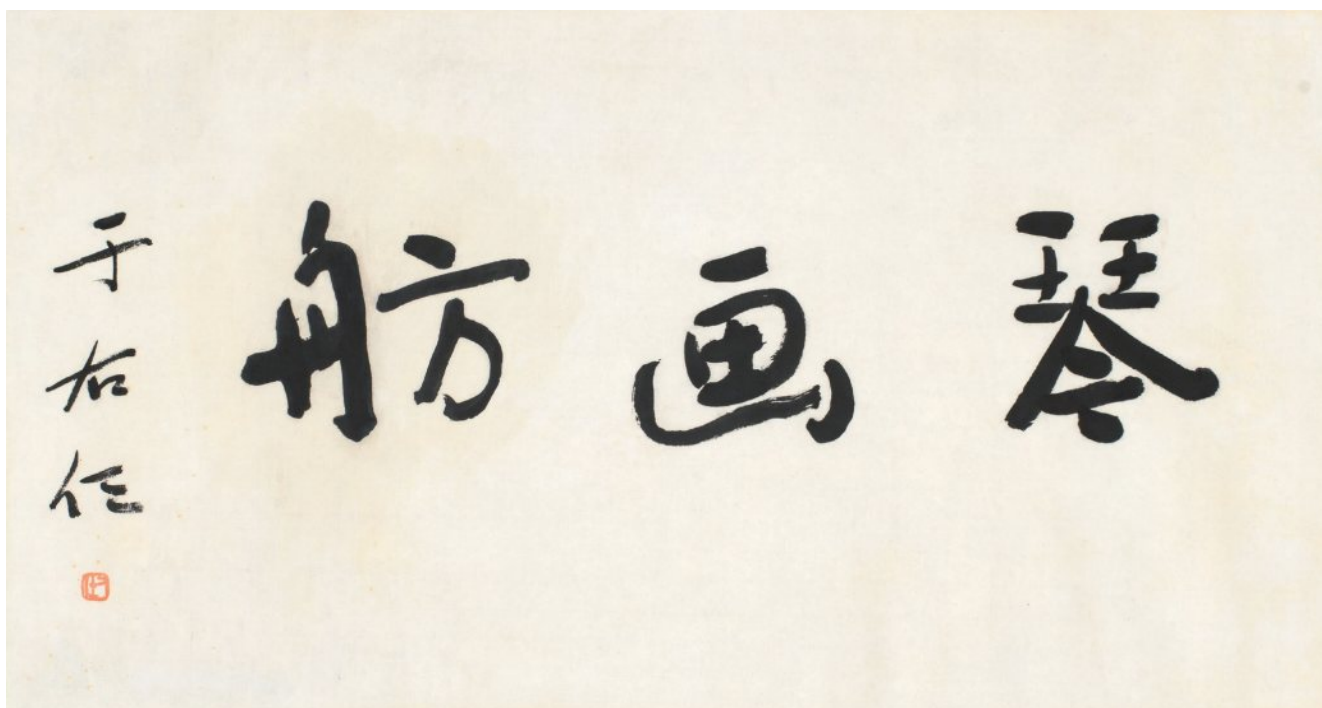 琴画舫
于右任